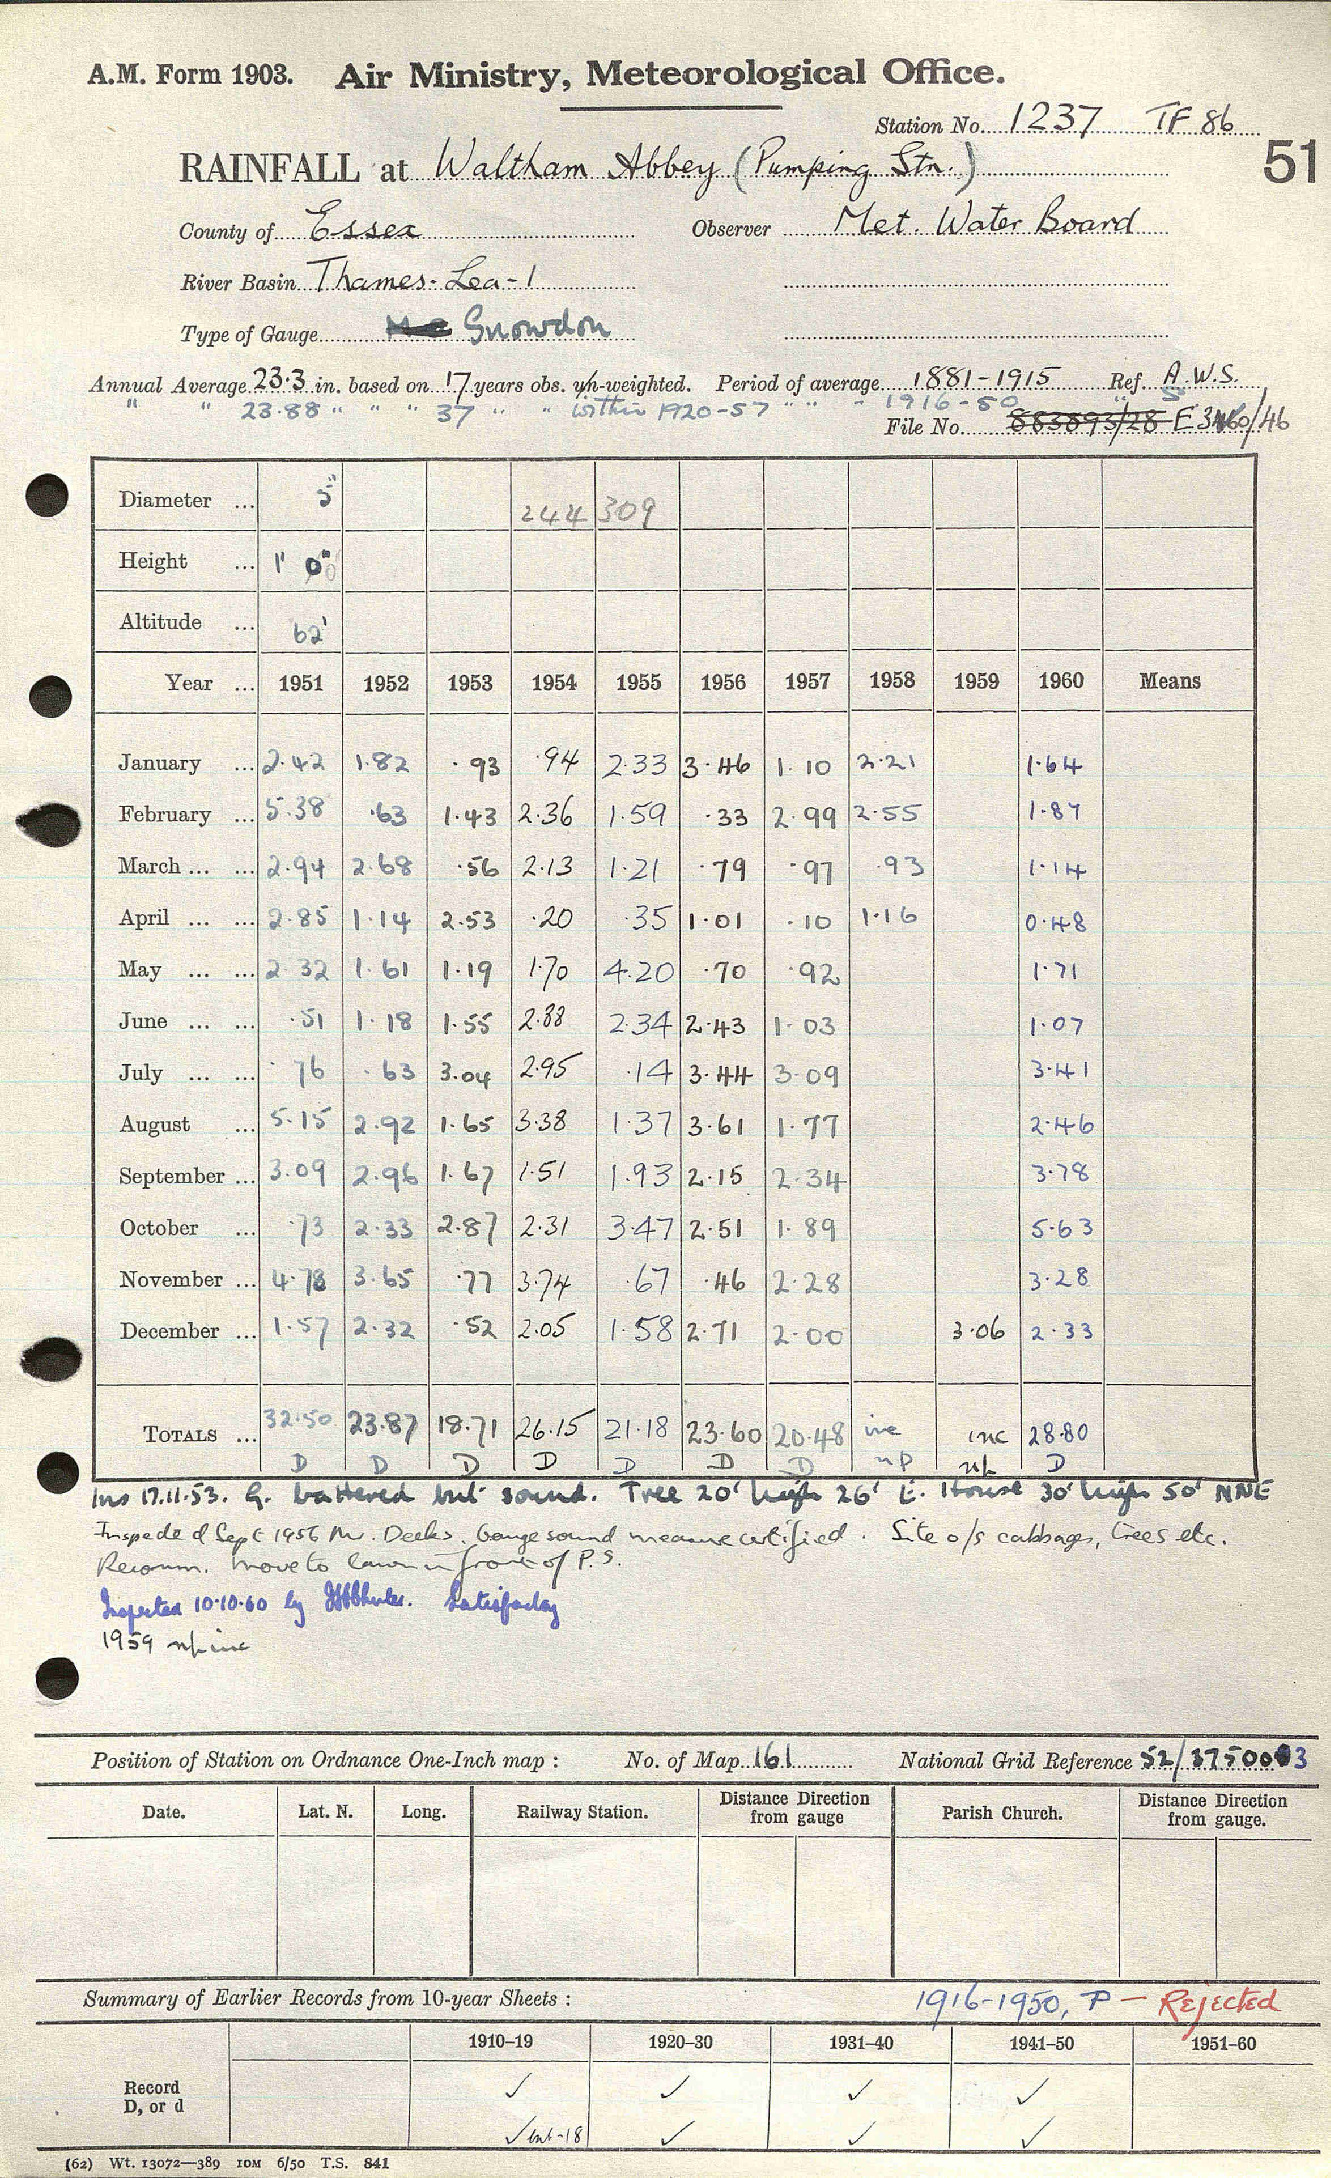 A.M. Form 1903. Air Ministry, Meteorological Office.
Station No. 1237 TF 86
51
RAINFALL at Waltham Abbey (Pumping Stn.)
County of Essex Observer Met. Water Board
River Basin Thames-Lea-1
Type of Gauge Snowdon
Annual Average 23.3 in. based on 17 years obs. un-weighted. Period of average 1881-1915 Ref. A.W.S.
" " 23.88 " " " 37 " " within 1920-57 " " " 1916-50
File No. 883893/28 E3460/46
Diameter ... 5" 244 309
Height ... 1' 0"
Altitude ... 62'
Year ... 1951 1952 1953 1954 1955 1956 1957 1958 1959 1960 Means
January ... 2.42 1.82 .93 .94 2.33 3.46 1.10 2.21 1.64
February ... 5.38 .63 1.43 2.36 1.59 .33 2.99 2.55 1.87
March ... ... 2.94 2.68 .56 2.13 1.21 .79 .97 .93 1.14
April ... ... 2.85 1.14 2.53 .20 .35 1.01 .10 1.16 0.48
May ... ... 2.32 1.61 1.19 1.70 4.20 .70 .92 1.71
June ... ... .51 1.18 1.55 2.88 2.34 2.43 1.03 1.07
July ... ... .76 .63 3.04 2.95 .14 3.44 3.09 3.41
August ... 5.15 2.92 1.65 3.38 1.37 3.61 1.77 2.46
September ... 3.09 2.96 1.67 1.51 1.93 2.15 2.34 3.78
October ... .73 2.33 2.87 2.31 3.47 2.51 1.89 5.63
November ... 4.78 3.65 .77 3.74 .67 .46 2.28 3.28
December ... 1.57 2.32 .52 2.05 1.58 2.71 2.00 3.06 2.33
TOTALS ... 32.50 23.87 18.71 26.15 21.18 23.60 20.48 inc inc 28.80
D D D D D D D np np D
Ins 17.11.53. G. battered but sound. Tree 20' high 26' E. House 30' high 50' NNE
Inspected Sept 1956 Mr. Deeks. Gauge sound measure certified. Site o/s cabbages, trees etc.
Recomm. move to lawn in front of P.S.
Inspected 10.10.60 by Satisfactory
1959 np inc
Position of Station on Ordnance One-Inch map : No. of Map 161 National Grid Reference 52/375003
Date. Lat. N. Long. Railway Station. Distance from gauge Direction Parish Church. Distance from gauge. Direction
Summary of Earlier Records from 10-year Sheets : 1916-1950, P - Rejected
1910–19 1920–30 1931–40 1941–50 1951–60
Record ✓ ✓ ✓ ✓
D, or d ✓ but -18 ✓ ✓ ✓
(62) Wt. 13072—389 10M 6/50 T.S. 841